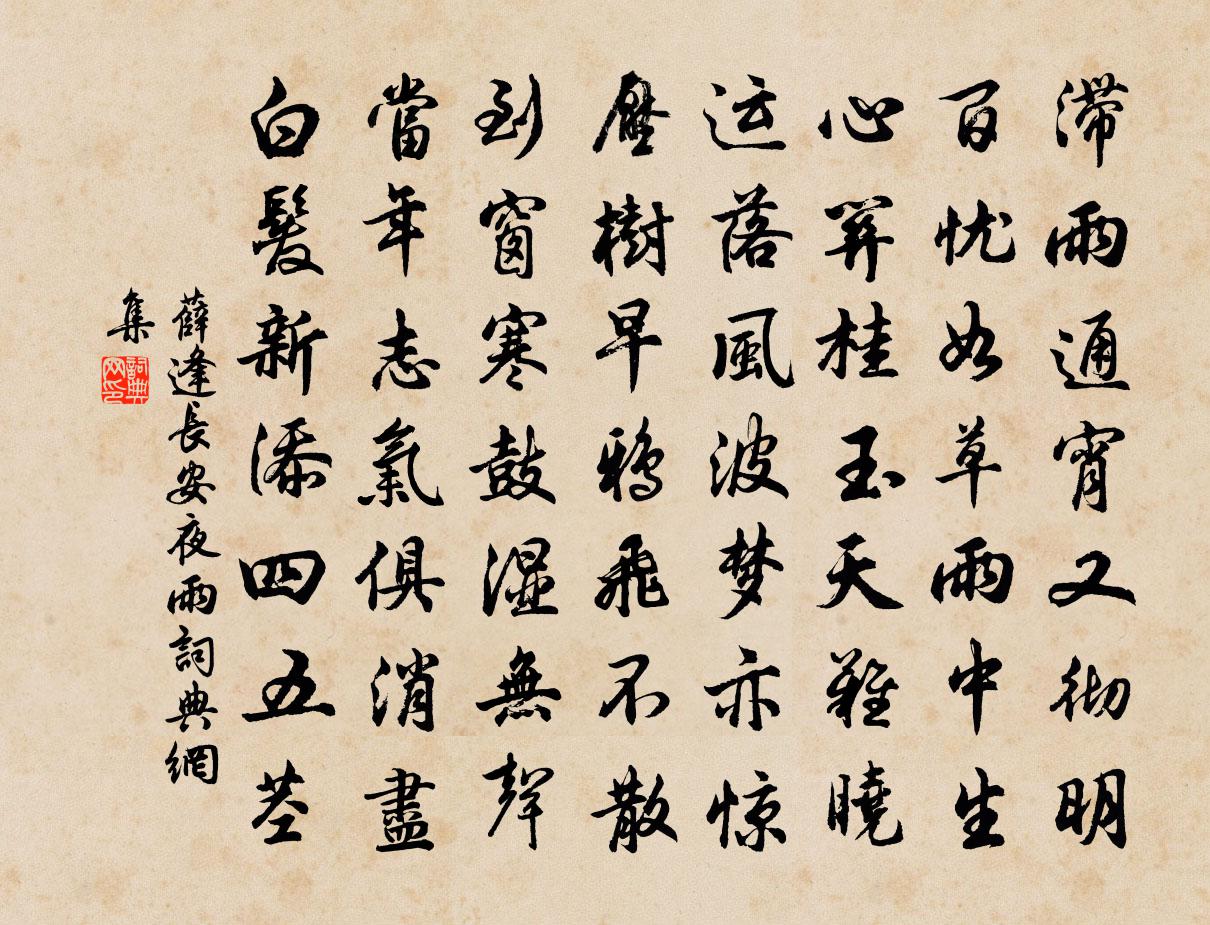 滯雨通宵又彻明
百忧如草雨中生
心關桂玉天難曉
运落風波梦亦惊
壓樹早鴉飛不散
到窗寒鼓湿無聲
當年志氣俱消盡
白髮新添四五茎
薛逢長安夜雨詞典網
集
詞典网印